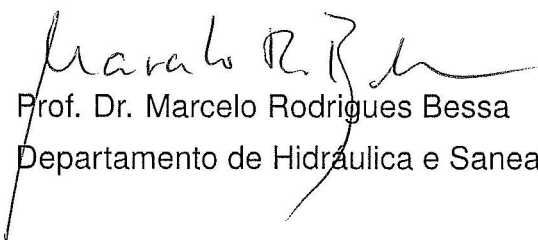 Marcelo R. Bessa
Prof. Dr. Marcelo Rodrigues Bessa
Departamento de Hidráulica e Sanea